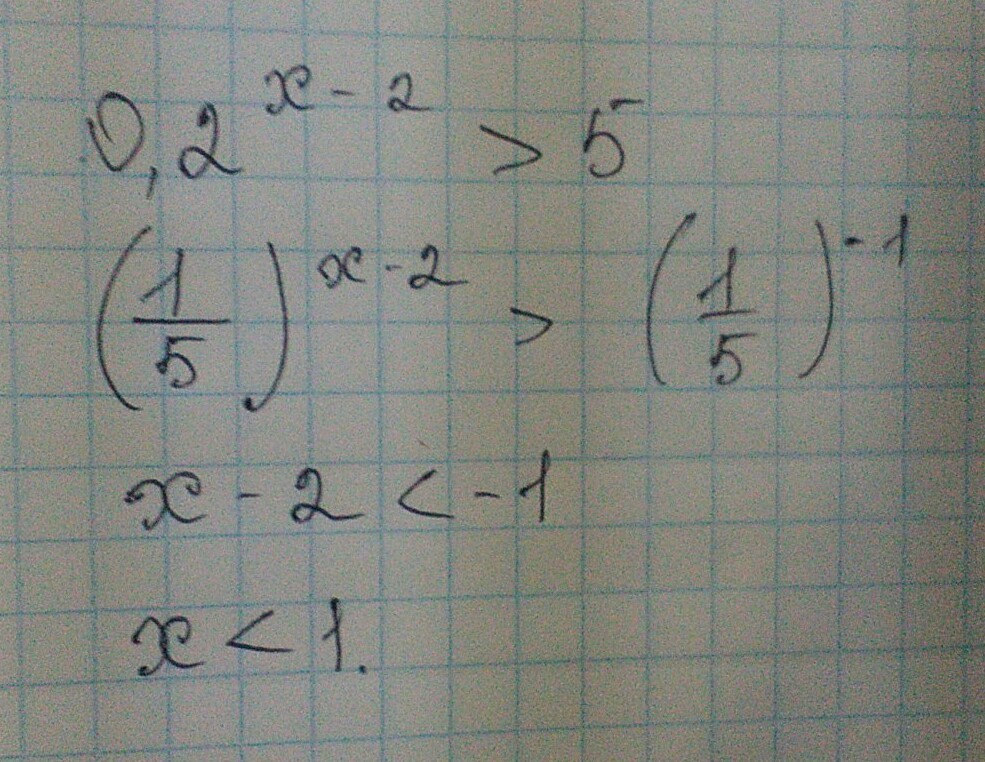 0,2^{x-2} > 5
(1/5)^{x-2} > (1/5)^{-1}
x - 2 < -1
x < 1.